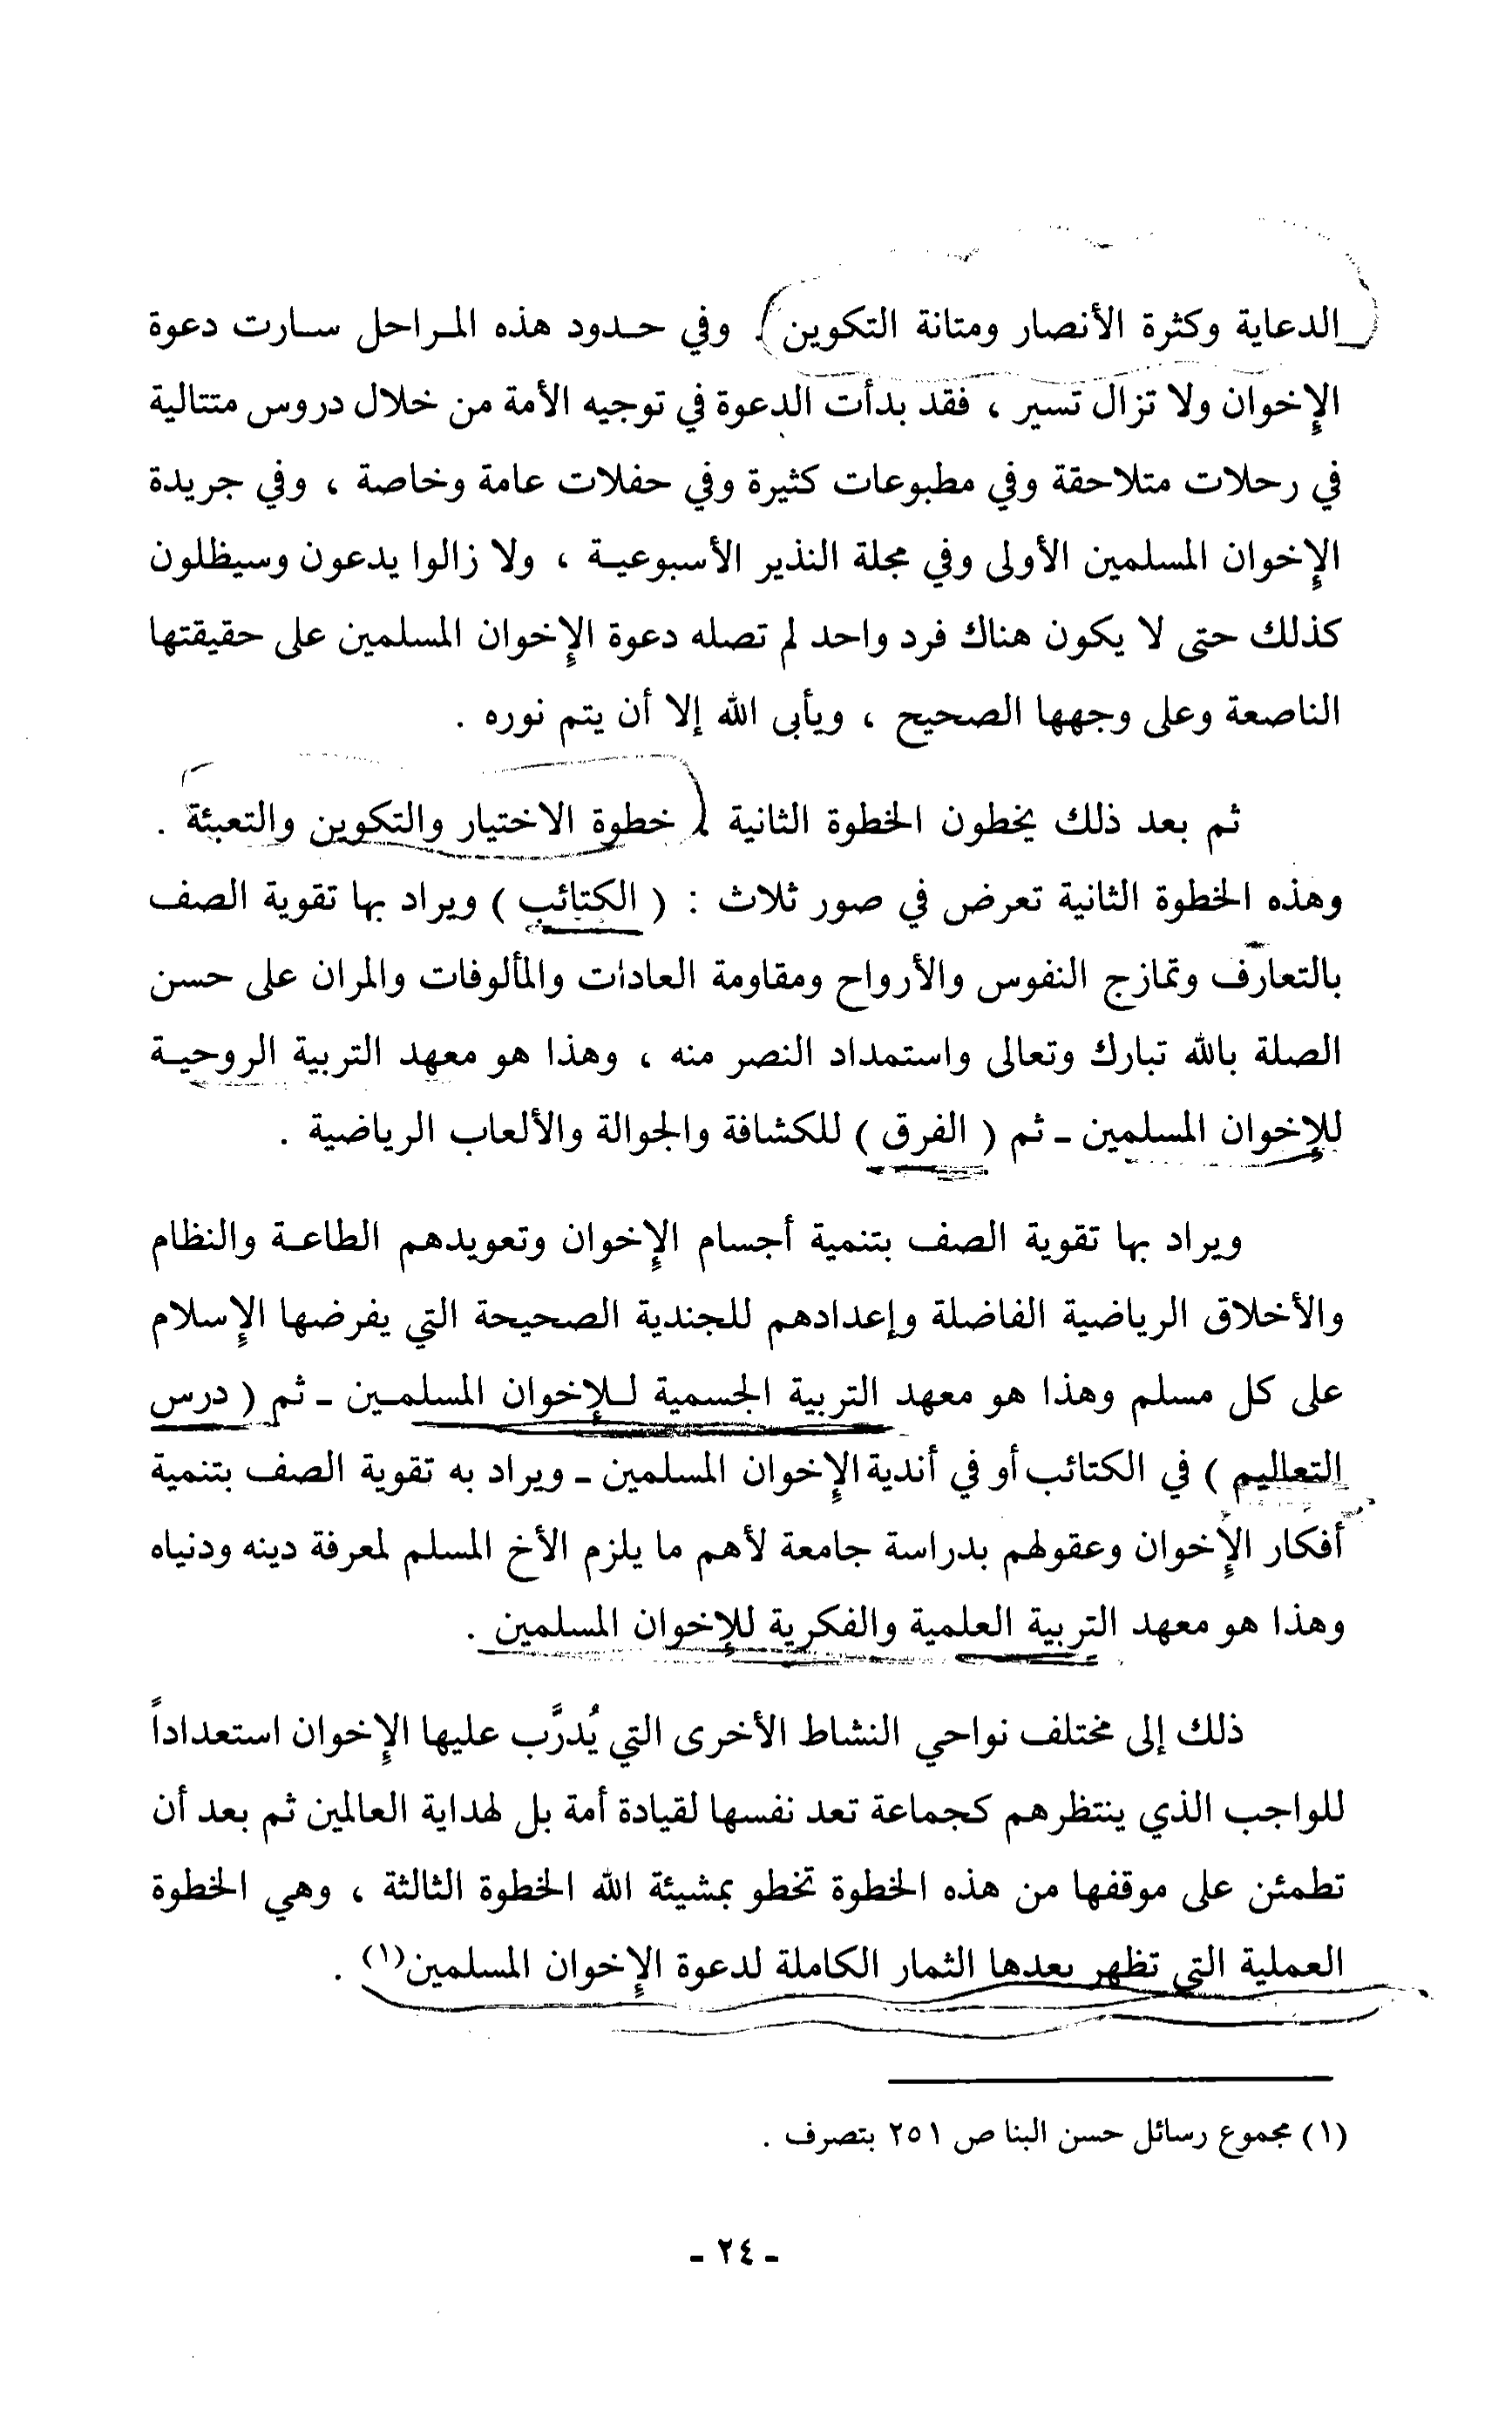 الدعاية وكثرة الأنصار ومتانة التكوين . وفي حدود هذه المراحل سارت دعوة
الإخوان ولا تزال تسير ، فقد بدأت الدعوة في توجيه الأمة من خلال دروس متتالية
في رحلات متلاحقة وفي مطبوعات كثيرة وفي حفلات عامة وخاصة ، وفي جريدة
الإخوان المسلمين الأولى وفي مجلة النذير الأسبوعية ، ولا زالوا يدعون وسيظلون
كذلك حتى لا يكون هناك فرد واحد لم تصله دعوة الإخوان المسلمين على حقيقتها
الناصعة وعلى وجهها الصحيح ، ويأبى الله إلا أن يتم نوره .
ثم بعد ذلك يخطون الخطوة الثانية ، خطوة الاختيار والتكوين والتعبئة .
وهذه الخطوة الثانية تعرض في صور ثلاث : ( الكتائب ) ويراد بها تقوية الصف
بالتعارف وتمازج النفوس والأرواح ومقاومة العادات والمألوفات والمران على حسن
الصلة بالله تبارك وتعالى واستمداد النصر منه ، وهذا هو معهد التربية الروحية
للإخوان المسلمين - ثم ( الفرق ) للكشافة والجوالة والألعاب الرياضية .
ويراد بها تقوية الصف بتنمية أجسام الإخوان وتعويدهم الطاعة والنظام
والأخلاق الرياضية الفاضلة وإعدادهم للجندية الصحيحة التي يفرضها الإسلام
على كل مسلم وهذا هو معهد التربية الجسمية للإخوان المسلمين - ثم ( درس
التعاليم ) في الكتائب أو في أندية الإخوان المسلمين - ويراد به تقوية الصف بتنمية
أفكار الإخوان وعقولهم بدراسة جامعة لأهم ما يلزم الأخ المسلم لمعرفة دينه ودنياه
وهذا هو معهد التربية العلمية والفكرية للإخوان المسلمين .
ذلك إلى مختلف نواحي النشاط الأخرى التي يُدرَّب عليها الإخوان استعداداً
للواجب الذي ينتظرهم كجماعة تعد نفسها لقيادة أمة بل لهداية العالمين ثم بعد أن
تطمئن على موقفها من هذه الخطوة تخطو بمشيئة الله الخطوة الثالثة ، وهي الخطوة
العملية التي تظهر بعدها الثمار الكاملة لدعوة الإخوان المسلمين(١) .
(١) مجموع رسائل حسن البنا ص ٢٥١ بتصرف .
- ٢٤ -